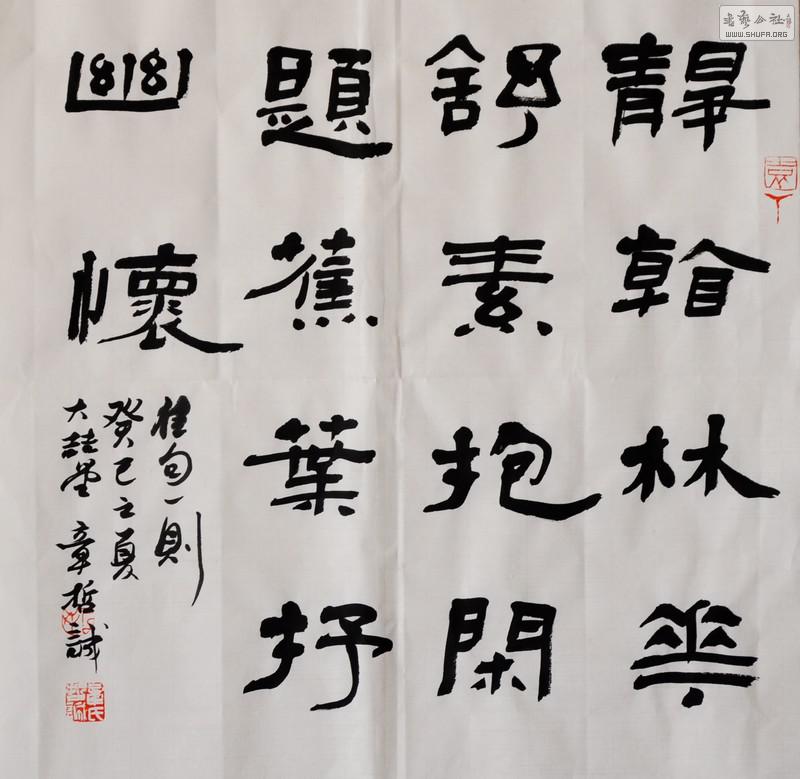 靜翰林華
舒素抱閑
題蕉葉抒
幽懷
佳句一則
癸巳之夏
大喆堂 章哲誠
书艺公社
WWW.SHUFA.ORG